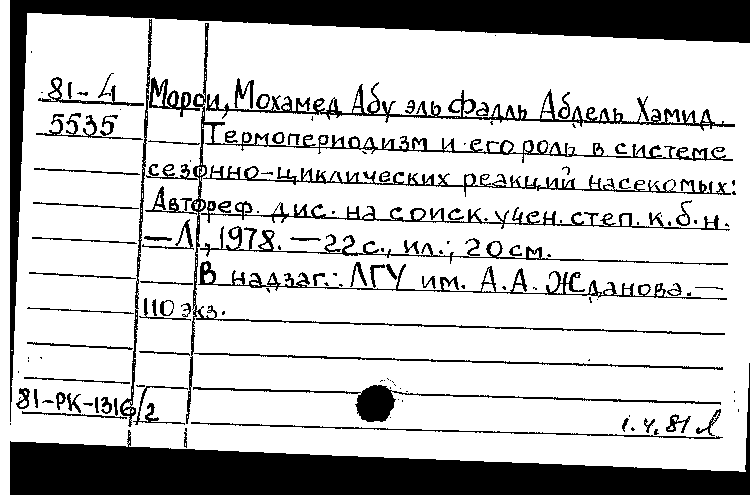 81-4 Морси, Мохамед Абу эль Фадль Абдель Хамид.
5535 Термопериодизм и его роль в системе
сезонно-циклических реакций насекомых:
Автореф. дис. на соиск. учен. степ. к.б.н.
—Л., 1978. — 22 с., ил.; 20 см.
В надзаг.: ЛГУ им. А.А. Жданова. —
110 экз.
81-РК-1316/2
1.4.81 Л